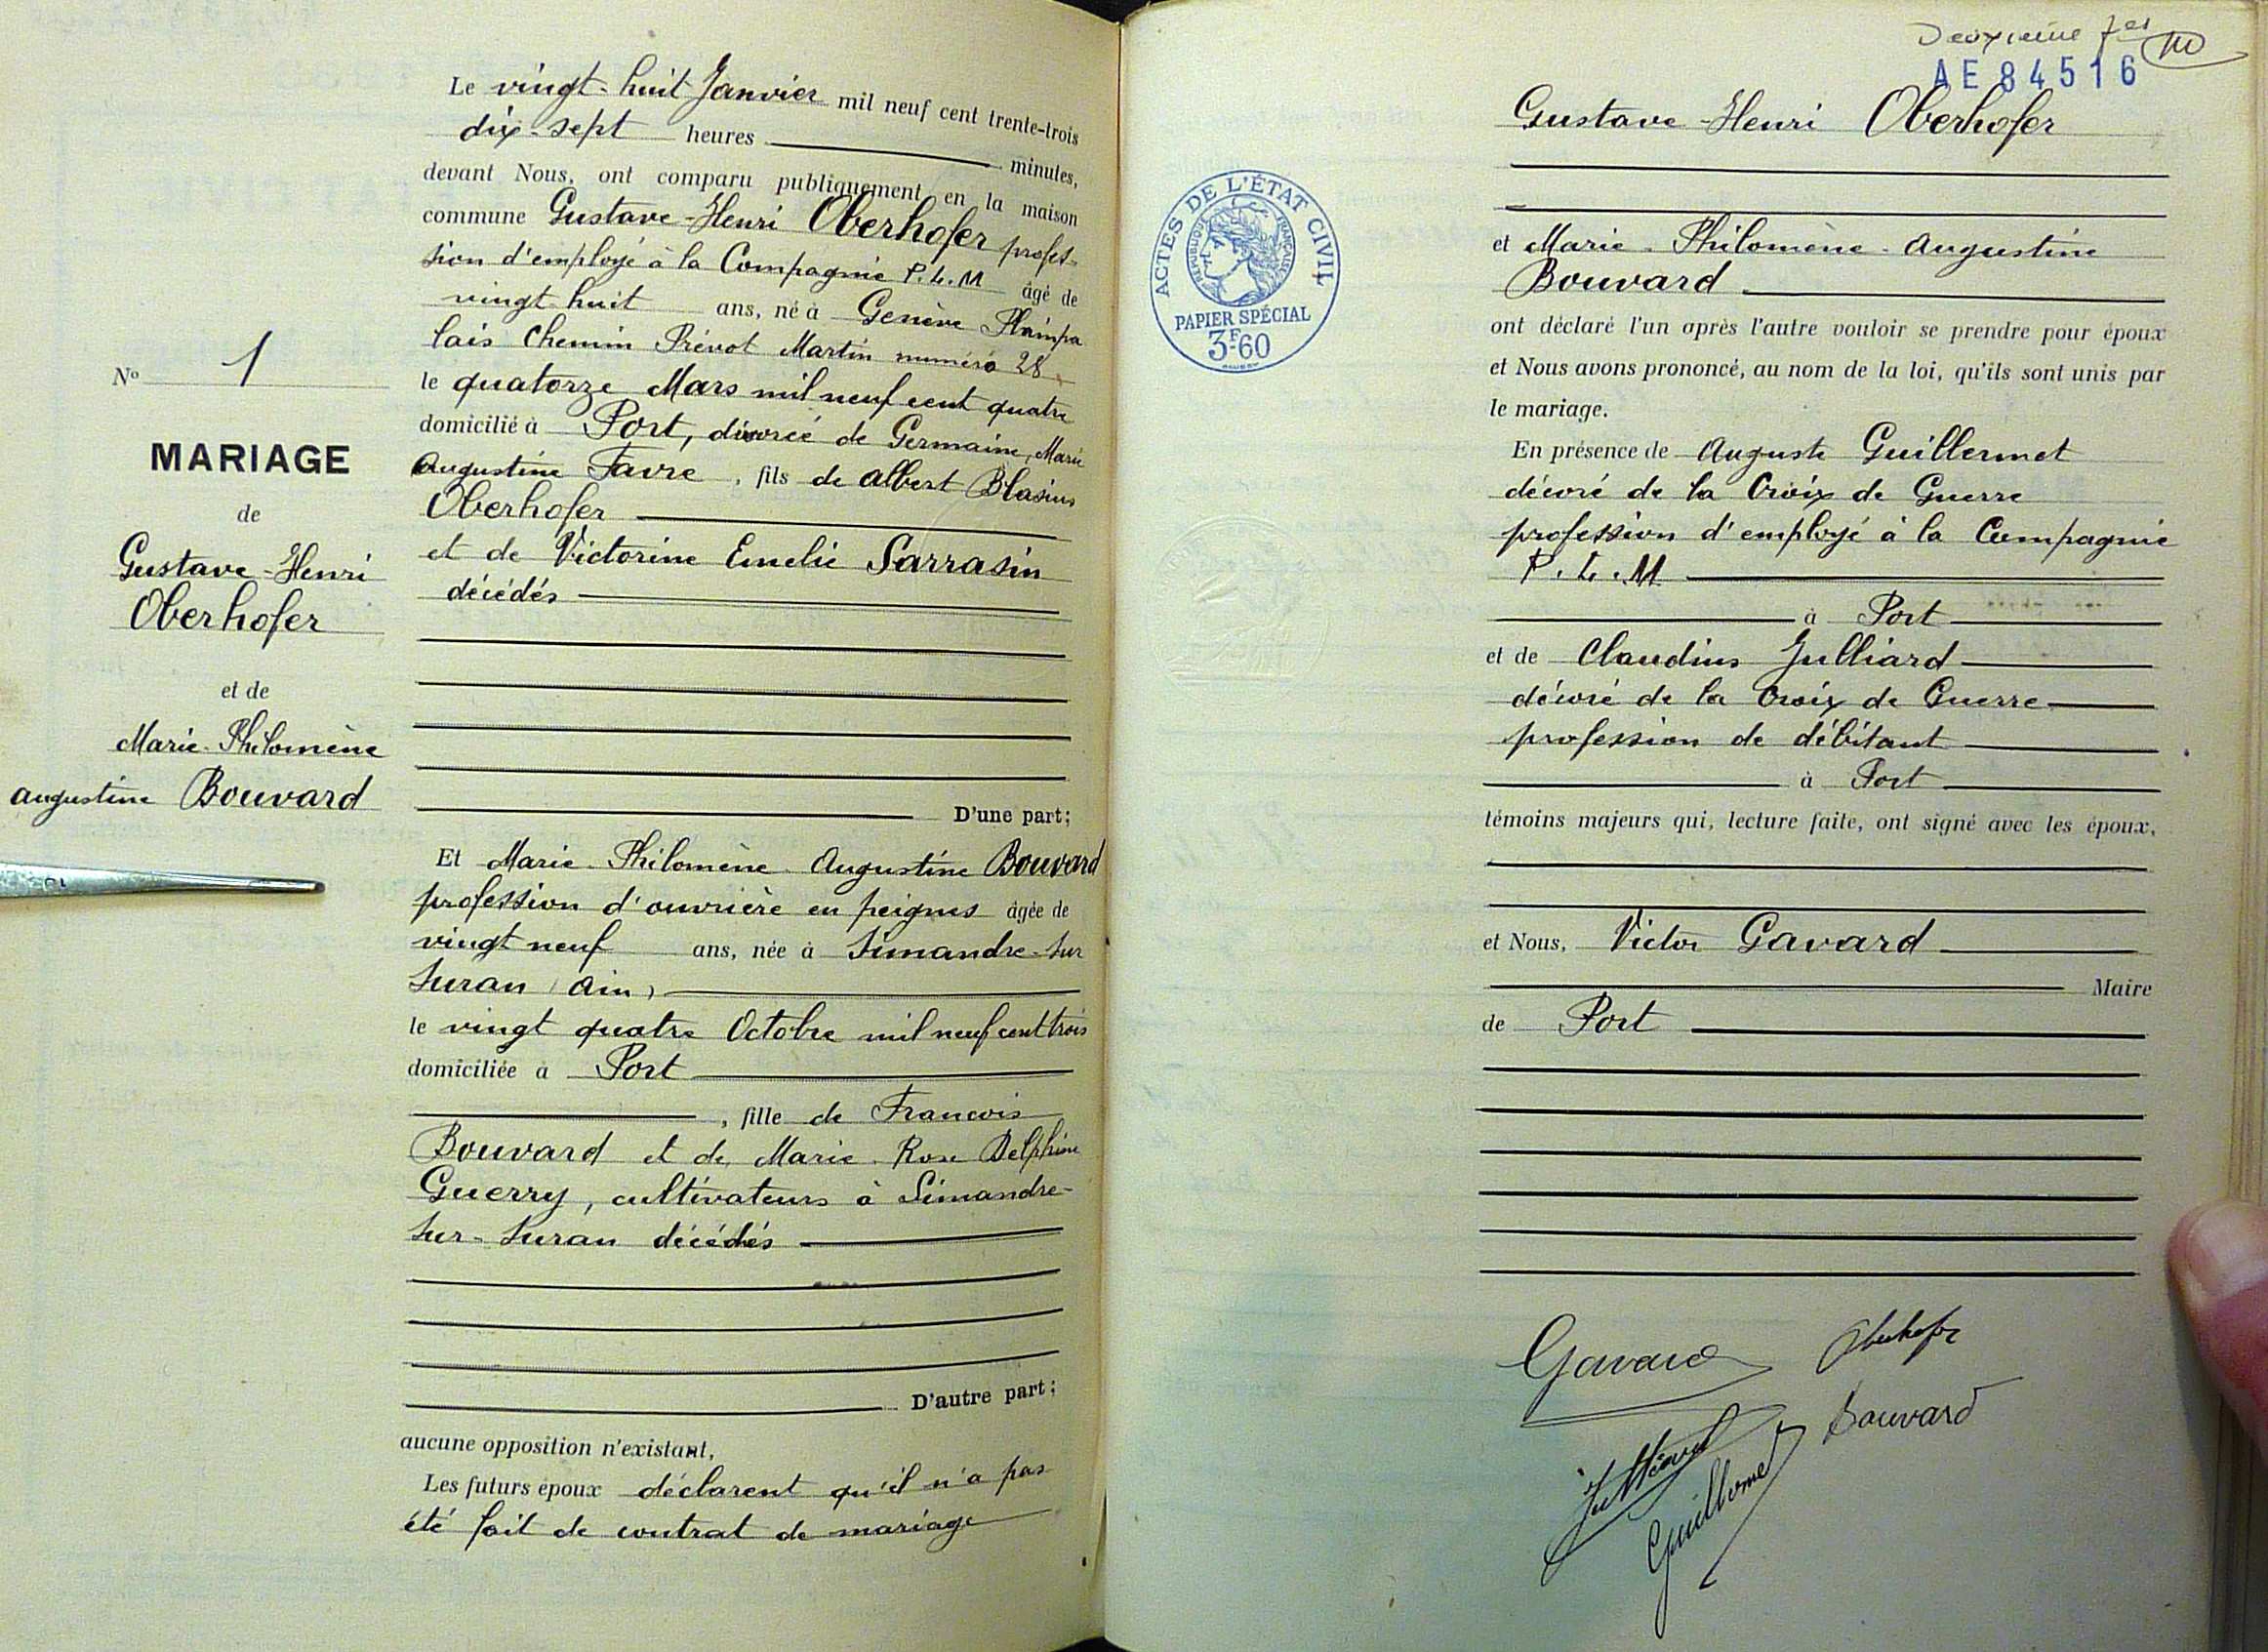 N° 1
MARIAGE
de
Gustave-Henri
Oberhofer
et de
Marie-Philomène
Augustine Bouvard
Le vingt-huit Janvier mil neuf cent trente-trois
dix-sept heures minutes,
devant Nous, ont comparu publiquement en la maison
commune Gustave-Henri Oberhofer profes-
sion d'employé à la Compagnie P.L.M âgé de
vingt huit ans, né à Genève Plainpa
lais Chemin Prévot Martin numéro 28
le quatorze Mars mil neuf cent quatre
domicilié à Port, divorcé de Germaine, Marie
Augustine Favre, fils de Albert Blasius
Oberhofer
et de Victorine Emelie Sarrasin
décédés
D'une part;
Et Marie-Philomène-Augustine Bouvard
profession d'ouvrière en peignes âgée de
vingt neuf ans, née à Simandre-sur
Suran (Ain)
le vingt quatre Octobre mil neuf cent trois
domiciliée à Port
, fille de Francois
Bouvard et de Marie-Rose Delphine
Guerry, cultivateurs à Simandre-
sur-Suran décédés
D'autre part;
aucune opposition n'existant,
Les futurs époux déclarent qu'il n'a pas
été fait de contrat de mariage
Deuxième
AE 84516
ACTES DE L'ÉTAT CIVIL
RÉPUBLIQUE FRANÇAISE
PAPIER SPÉCIAL
3F60
Gustave-Henri Oberhofer
et Marie-Philomène-Augustine
Bouvard
ont déclaré l'un après l'autre vouloir se prendre pour époux
et Nous avons prononcé, au nom de la loi, qu'ils sont unis par
le mariage.
En présence de Auguste Guillermet
décoré de la Croix de Guerre
profession d'employé à la Compagnie
P.L.M
à Port
et de Claudius Julliard
décoré de la Croix de Guerre
profession de débitant
à Port
témoins majeurs qui, lecture faite, ont signé avec les époux,
et Nous, Victor Gavard
Maire
de Port
Gavard Oberhofer
Bouvard
Julliard
Guillermet